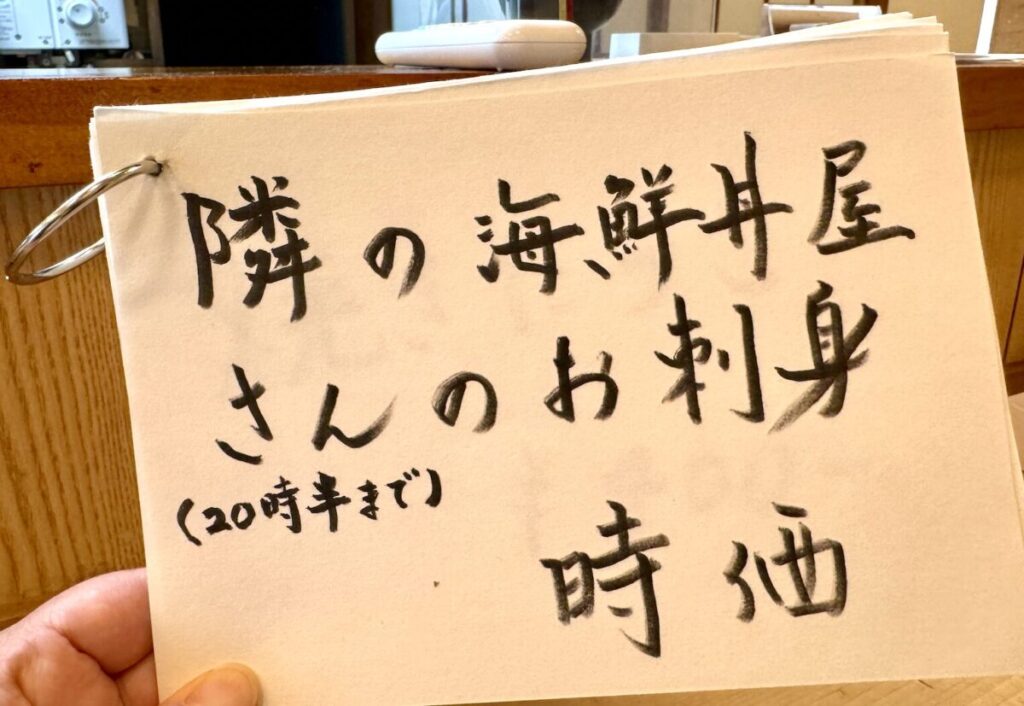 隣の海鮮丼屋
さんのお刺身
(20時半まで)
時価